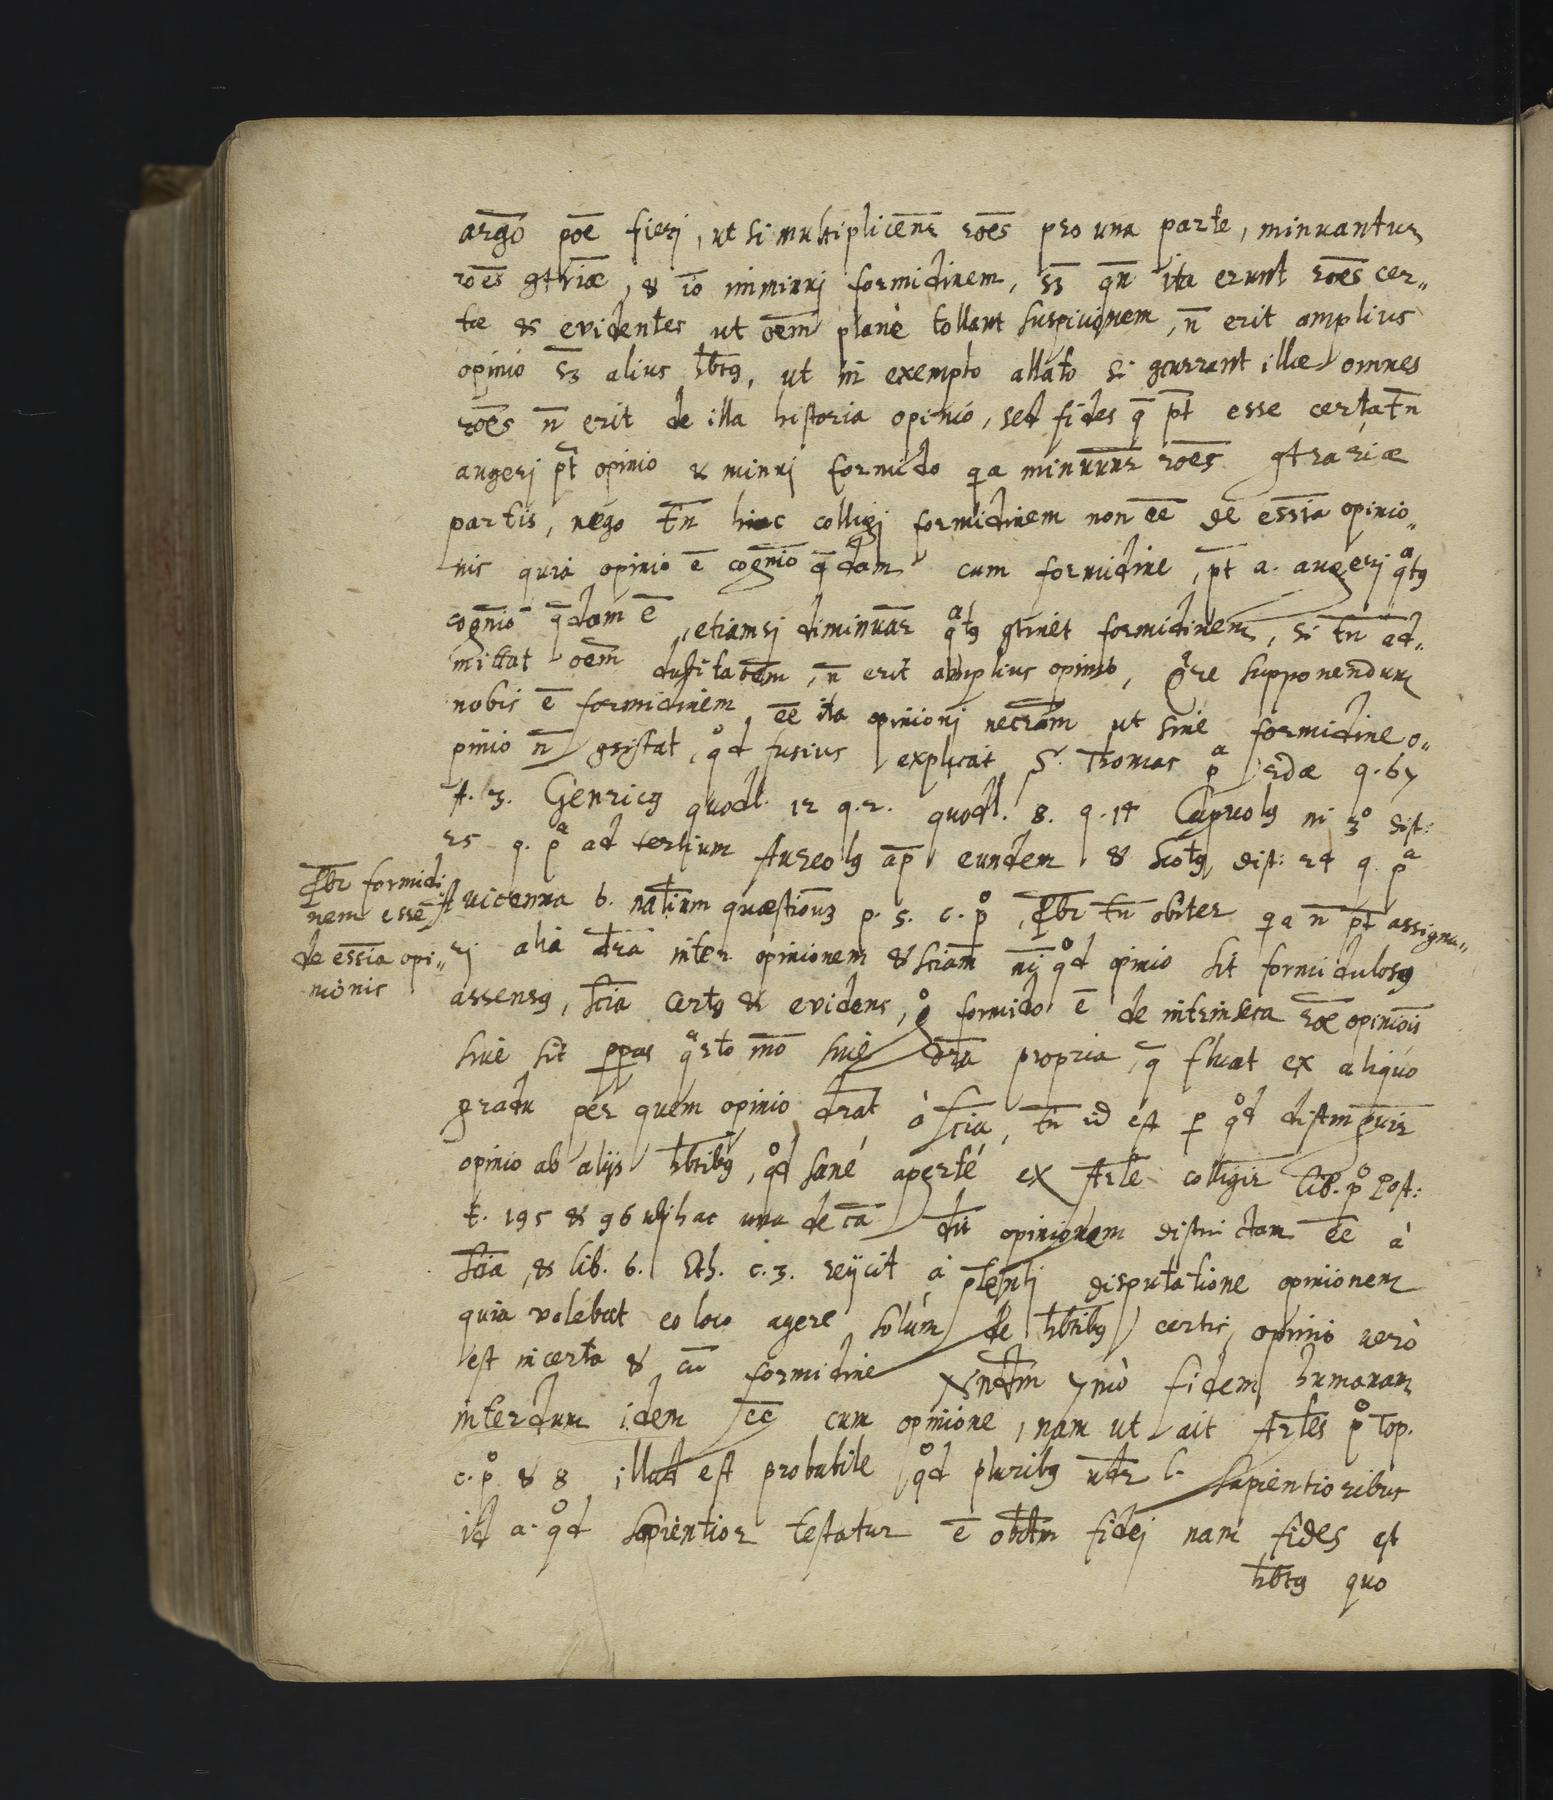 argō pōe fierj, ut si multiplicēnr rōes pro una parte, minuantur
rōes gtriāe, & iō imminuj formidinem, sʒ qn̄ ita erunt rōes cer„
tæ & evidentes ut oēm planè tollant suspicionem, n̄ erit amplius
opinio sʒ alius hb̄tꝰ, ut in exemplo allato si gcurrant illæ omnes
rōes n̄ erit de illa historia opinio, sed fides q̄ pt̄ esse certa tn̄
augerj pt̄ opinio & minuj formido qa minuunr̄ rōes gtrariæ
partis, nego tn̄ hinc colligj formidinem non ēe de ess̄ia opinio„
nis quia opinio ē cognīo q̄dam cum formidine, pt̄ a. augerj qᵃtꝰ
cognīo q̄dam ē, etiamsj diminuār qᵃtꝰ gtinet formidinem, si tn̄ ad„
mittat oēm dubitatēm, n̄ erit amplius opinio, qᵃre supponendum
nobis ē formidinem ēe ita opinionj necr̄am ut sine formidine o„
pinio n̄ gsistat, qᵒd fusius explicat S. Thomas pᵃ 2dæ q. 67
A. 3. Genricꝰ quodl. 12 q. 2. quodl. 8. q. 14 Capreolꝰ in 3º dist:
25 q. pᵃ ad tertium Aureolꝰ ap̄ eundem & Scotꝰ dist: 24 q. pᵃ
Avicenna 6. natīum quæstionūʒ p. 5. c. pº, ꝓbr tn̄ obiter qa n̄ pt̄ assigna„
rj alia dr̄a inter opinionem & sciām nj̄ qᵒd opinio sit formidulosꝰ
assensꝰ, scīa certꝰ & evidens, gº formido ē de intrinseca rōe opiniōis
siue sit pp̄as qᵃrto mō siue dr̄a propria, q̄ fluat ex aliquo
gradu per quem opinio drāt à scīa, tn̄ id est p qᵒd distinguir̄
opinio ab alijs hb̄tibꝰ, qᵒd sanè apertè ex Arle colligir̄ lib. pº Post:
t. 195 & 96 ubj hac una de cā dit opinionem distinctam ēe à
scīa, & lib. 6. Eth. c. 3. reijcit à pn̄tj disputatione opinionem
quia volebat eo loco agere solùm de hb̄tibꝰ certis, opinio verò
est incerta & cū formidine ymò fidem humanam
interdum idem ēe cum opinione, nam ut ait Arles pº Top.
c. pº & 8 illud est probabile qᵒd pluribꝰ udr̄ l. sapientioribus
id a. qᵒd sapientior testatur ē obtm̄ fidej nam fides est
hb̄tꝰ quo
ꝓbr formidi
nem essē
de ess̄ia opi„
nionis